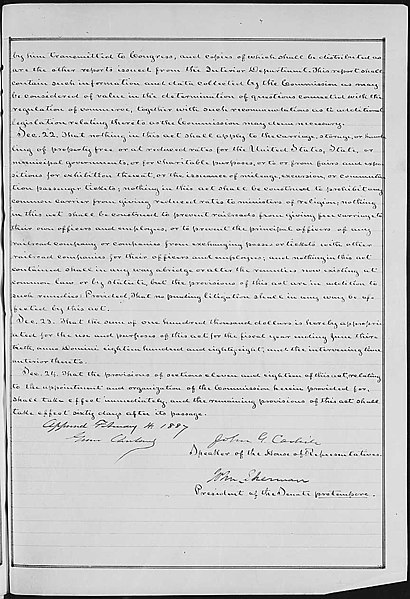 by him transmitted to Congress, and copies of which shall be distributed as
are the other reports issued from the Interior Department. This report shall
contain such information and data collected by the Commission as may
be considered of value in the determination of questions connected with the
regulation of commerce, together with such recommendations as to additional
legislation relating thereto as the Commission may deem necessary.
Sec. 22. That nothing in this act shall apply to the carriage, storage, or hand-
ling of property free or at reduced rates for the United States, State, or
municipal governments, or for charitable purposes, or to or from fairs and expo-
sitions for exhibition thereat, or the issuance of mileage, excursion, or commuta-
tion passenger tickets; nothing in this act shall be construed to prohibit any
common carrier from giving reduced rates to ministers of religion; nothing
in this act shall be construed to prevent railroads from giving free carriage to
their own officers and employes, or to prevent the principal officers of any
railroad company or companies from exchanging passes or tickets with other
railroad companies for their officers and employes; and nothing in this act
contained shall in any way abridge or alter the remedies now existing at
common law or by statute, but the provisions of this act are in addition to
such remedies: Provided, That no pending litigation shall in any way be af-
fected by this act.
Sec. 23. That the sum of one hundred thousand dollars is hereby appropri-
ated for the use and purposes of this act for the fiscal year ending June thir-
tieth, anno Domini eighteen hundred and eighty-eight, and the intervening time
anterior thereto.
Sec. 24. That the provisions of sections eleven and eighteen of this act, relating
to the appointment and organization of the Commission herein provided for,
shall take effect immediately, and the remaining provisions of this act shall
take effect sixty days after its passage.
Approved February 4 1887
Grover Cleveland
John G Carlisle
Speaker of the House of Representatives.
John Sherman
President of the Senate pro tempore.